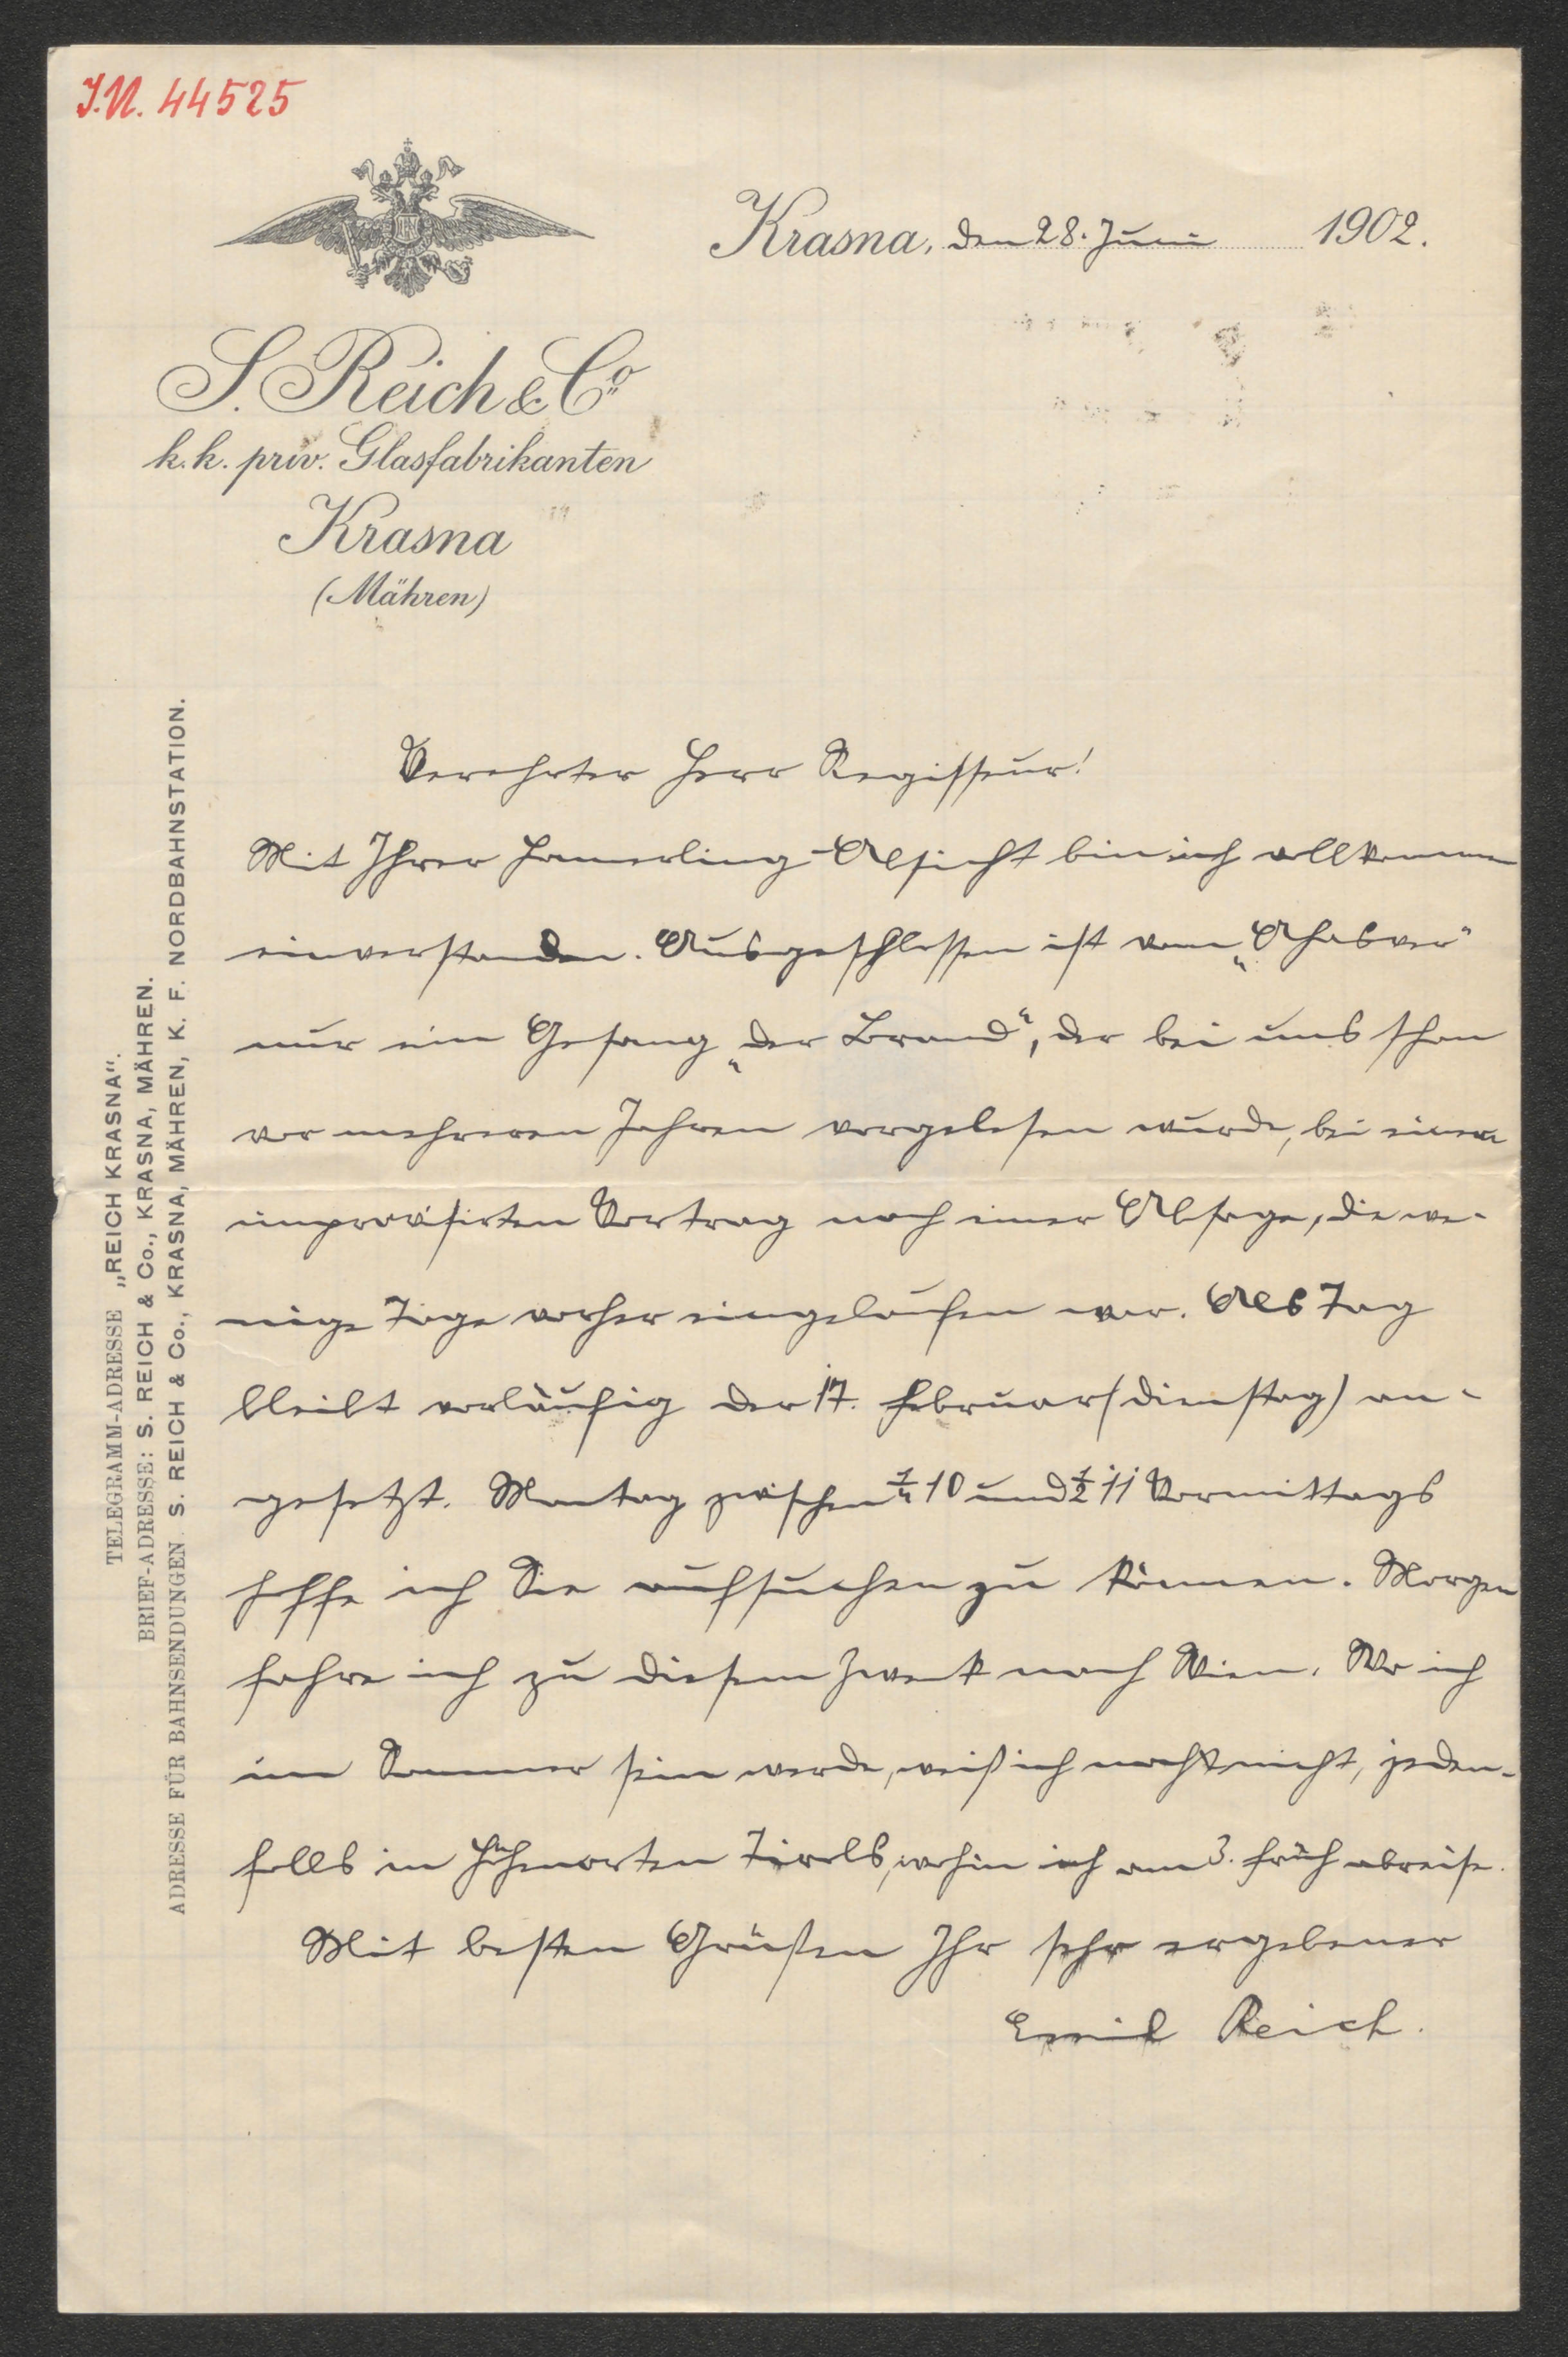 I.N. 44525
Krasna, den 28. Juni 1902.
S. Reich & Co
k. k. priv. Glasfabrikanten
Krasna
(Mähren)
TELEGRAMM-ADRESSE „REICH KRASNA“.
BRIEF-ADRESSE: S. REICH & Co., KRASNA, MÄHREN.
ADRESSE FÜR BAHNSENDUNGEN S. REICH & Co., KRASNA, MÄHREN, K. F. NORDBAHNSTATION.
Verehrter Herr Regisseur!
Mit Ihrer Hamerling-Absicht bin ich vollkommen
einverstanden. Ausgeschlossen ist vom „Ahasver“
nur ein Gesang „der Brand“, der bei uns schon
vor mehreren Jahren vorgelesen wurde, bei einem
improvisirten Vortrag nach einer Absage, die we-
nige Tage vorher eingelaufen war. Als Tag
bleibt vorläufig der 17. Februar (Dienstag) an-
gesetzt. Montag zwischen 10 und ½ 11 Vormittags
hoffe ich Sie aufsuchen zu können. Morgen
fahre ich zu diesem Zweck nach Wien. Wo ich
im Sommer sein werde, weiß ich noch nicht, jeden-
falls in Höhenorten Tirols, wohin ich am 3. früh abreise.
Mit besten Grüßen Ihr sehr ergebener
Emil Reich.